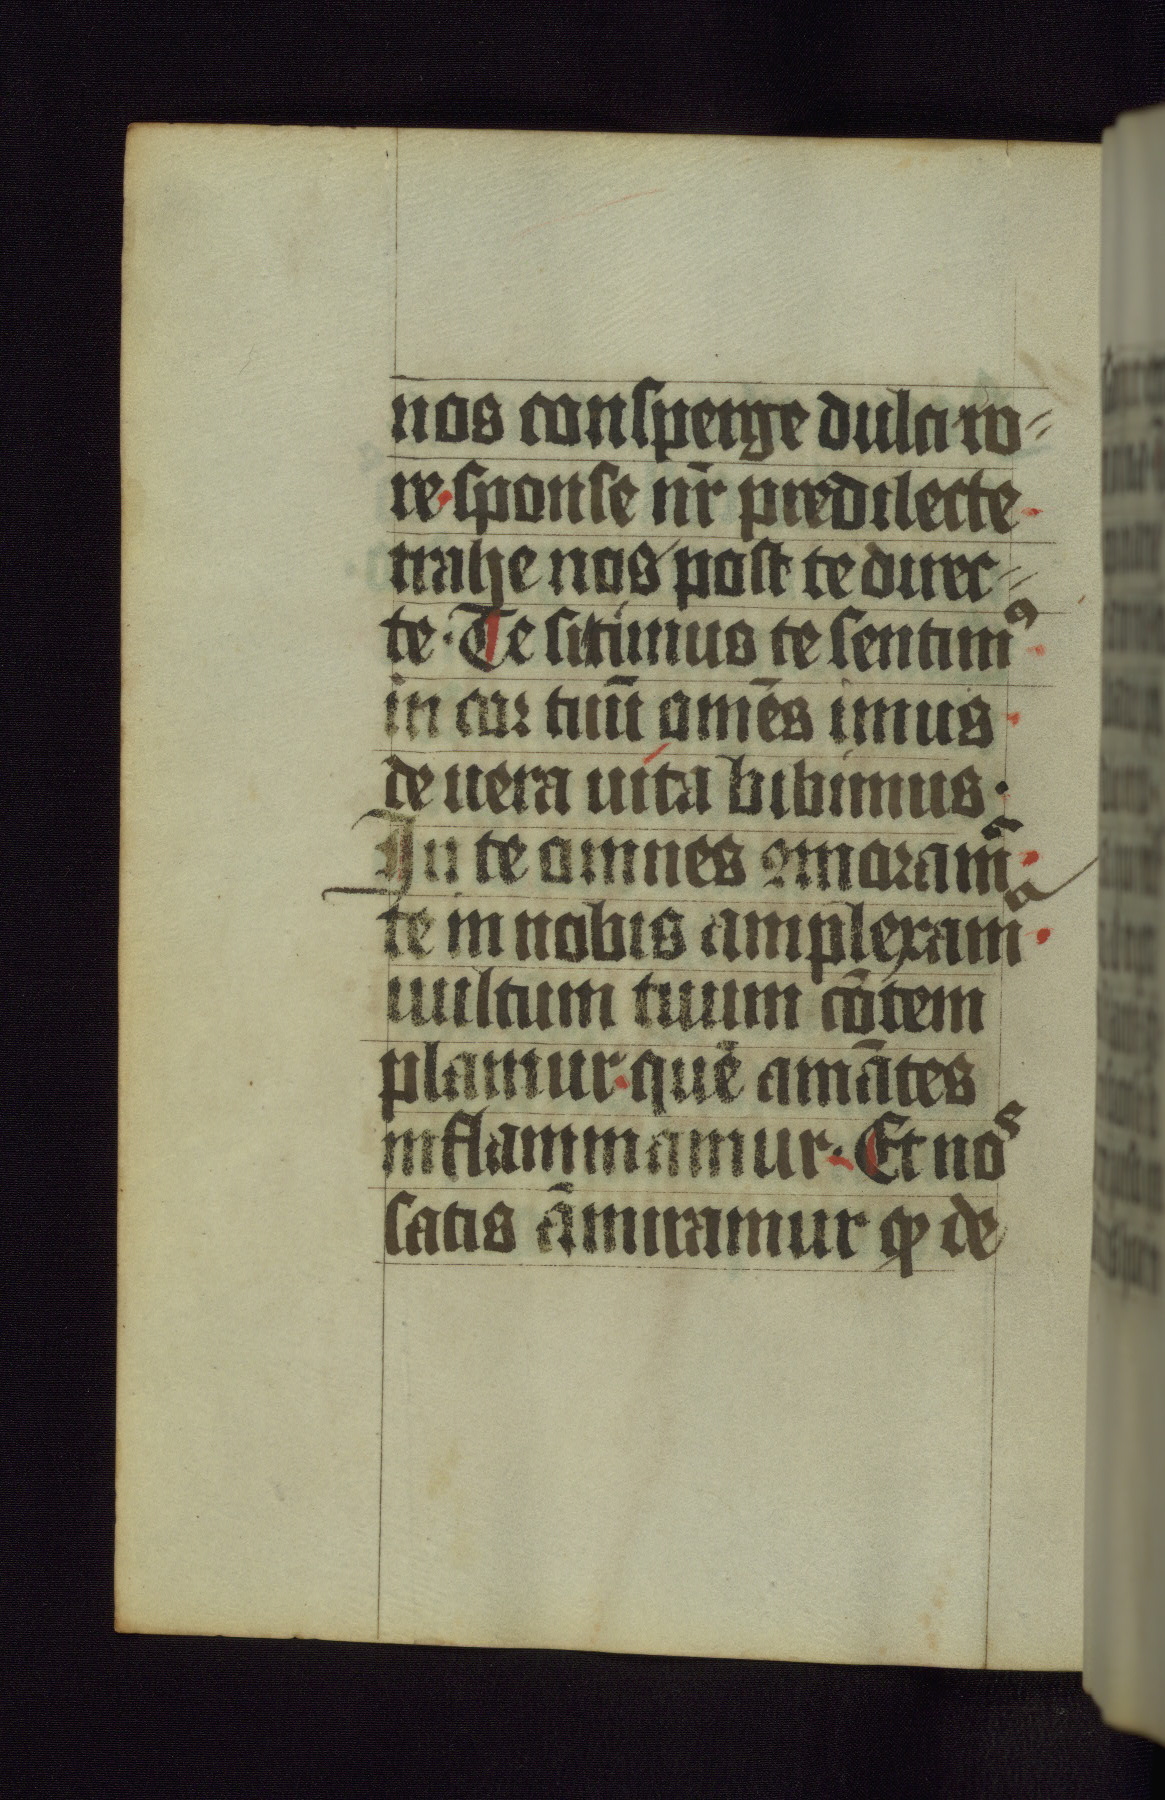 nos consperge dulci ro⸗
re· sponse nr̄ predilecte·
trahe nos post te direc⸗
te· Te sitimus te sentimꝰ·
in cor tuū omēs imus·
de uera uita bibimus·
In te omnes ꝯmoram̄·
te in nobis amplexam̄·
uultum tuum cōtem
plamur· quē amātes
inflammamur· Et nos
satis āmiramur ꝙ de